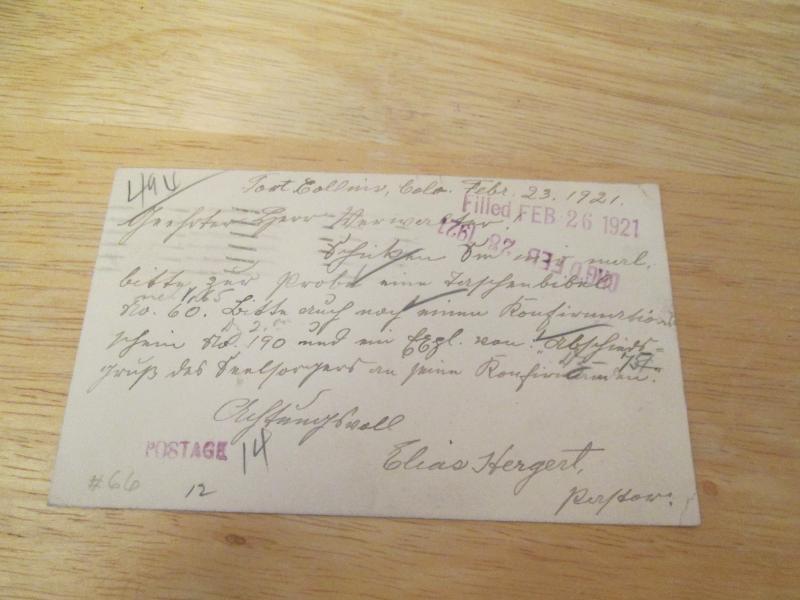 494
Fort Collins, Colo. Febr. 23. 1921.
Geehrter Herr Verwalter!
Filled FEB 26 1921
CHG'D FEB 28 1921
Schicken Sie mir mal,
bitte zur Probe eine Taschenbibel
No. 60. Bitte auch noch einen Konfirmations
schein No. 190 und ein Expl. von "Abschieds-
gruß des Seelsorgers an seine Konfirmanden."
75
Achtungsvoll
POSTAGE 14
Elias Hergert,
Pastor.
#66
12